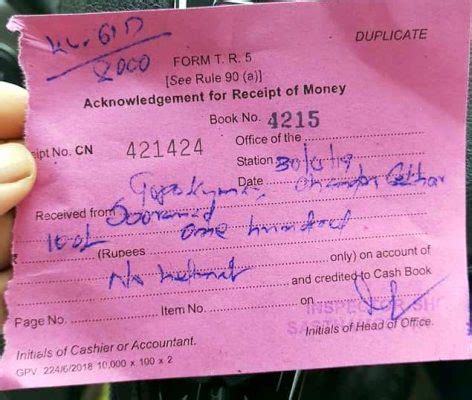 DUPLICATE
KL. 61D
8000
FORM T. R. 5
[See Rule 90 (a)]
Acknowledgement for Receipt of Money
Book No. 4215
ipt No. CN 421424 Office of the
Station
Date
Received from
100/- (Rupees one hundred
only) on account of
No helmet and credited to Cash Book
Page No. Item No. on
INSPECTOR
Initials of Cashier or Accountant. Initials of Head of Office.
GPV 224/6/2018 10,000 x 100 x 2